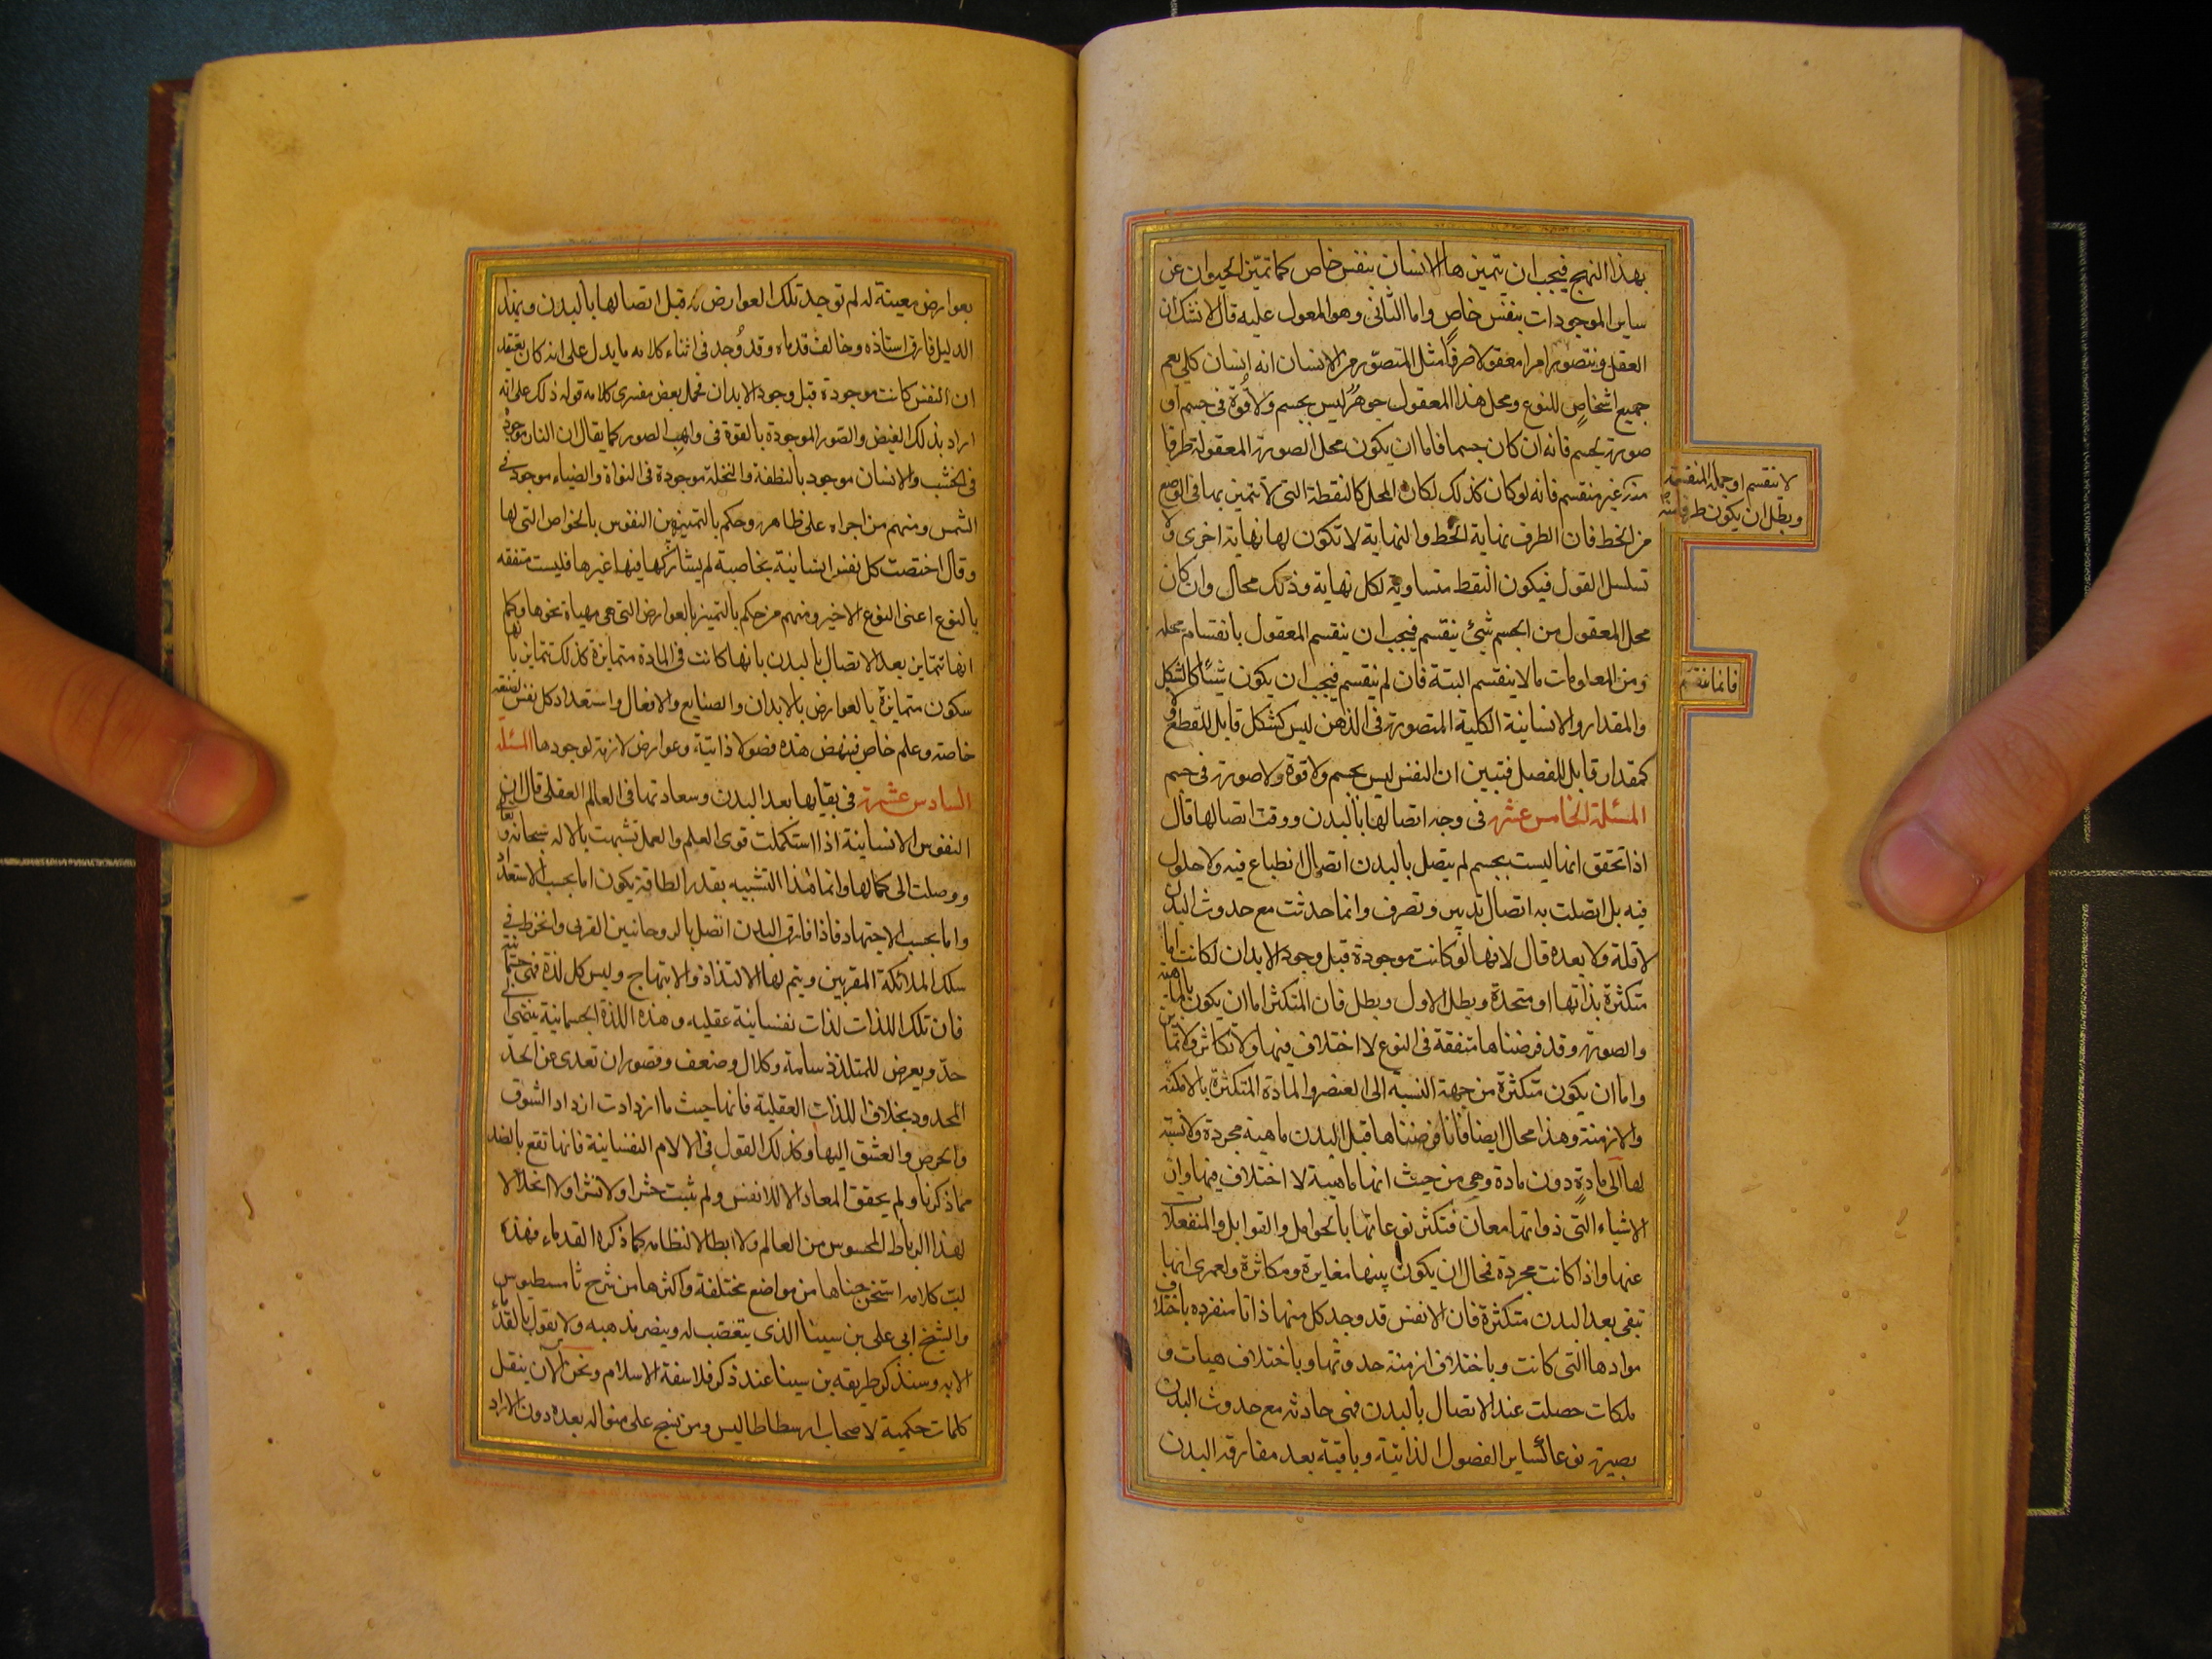 بهذا النهج فيجب ان يتميز هاهنا الانسان بنفس خاص كما تميز الحيوان عن
ساير الموجودات بنفس خاص واما الثاني وهو المعول عليه قال لا نشك ان
العقل ونتصور امرا معقولا صرفا مثل المتصور من الانسان انه انسان كلي يعم
جميع اشخاص النوع ومحل هذا المعقول جوهر ليس بجسم ولا قوة في جسم او
صورة بجسم فانه ان كان جسما فاما ان يكون محل الصورة المعقولة طرفا
منه غير منقسم فانه لو كان كذلك لكان المحل كالنقطة التي لا تتميز لها في الوضع
من الخط فان الطرف نهاية الخط والنهاية لا تكون لها نهاية اخرى والا
تسلسل القول فيكون النقط متساوية لكل نهاية وذلك محال وان كان
محل المعقول من الجسم شئ ينقسم فيجب ان ينقسم المعقول بانقسام محله
ومن المعلومات ما لا ينقسم البتة فان لم ينقسم فيجب ان يكون شيئا كالشكل
والمقدار والانسانية الكلية المتصورة في الذهن ليس كشكل قابل للقطع ولا
كمقدار قابل للفصل فتبين ان النفس ليس بجسم ولا قوة ولا صورة في جسم
المسئلة الخامس عشرة في وجه اتصالها بالبدن ووقت اتصالها قال
اذا تحقق انها ليست بجسم لم يتصل بالبدن اتصال انطباع فيه ولا حلول
فيه بل اتصلت به اتصال تدبير وتصرف وانما حدثت مع حدوث البدن
لا قبله ولا بعده قال لانها لو كانت موجودة قبل وجود الابدان لكانت اما
متكثرة بذاتها او متحدة وبطل الاول وبطل فان المتكثر اما ان يكون بالماهية
والصورة وقد فرضناها متفقة في النوع لا اختلاف فيها ولا تكاثر ولا تمايز
واما ان يكون متكثرة من جهة النسبة الى العنصر والمادة المتكثرة بالامكنة
والازمنة وهذا محال ايضا فانا فرضناها قبل البدن ماهية مجردة ولا نسبة
لها الى مادة دون مادة وهي من حيث انها ماهية لا اختلاف فيها وان
الاشياء التي ذواتها معان فتكثر نوعاتها بالحوامل والقوابل والمنفعلات
عنها واذا كانت مجردة فمحال ان يكون بينها مغايرة ومكاثرة ولعمري انها
تبقى بعد البدن متكثرة فان الانفس قد وجد كل منها ذاتا منفرده باختلاف
موادها التي كانت وباختلاف ازمنة حدوثها وباختلاف هيات و
ملكات حصلت عند الاتصال بالبدن فهي حادثه مع حدوث البدن
بصيرة نوعا كساير الفصول الذاتية وباقية بعد مفارقة البدن
لا تنقسم او جملة المنقسمة
وبطل ان يكون طرفا منه
فانما ينقسم
بعوارض معينة له لم توجد تلك العوارض قبل اتصالها بالبدن وبهذا
الدليل فارق استاذه وخالف قدماه وقد وجد في اثناء كلامه ما يدل على انه كان يعتقد
ان النفس كانت موجودة قبل وجود الابدان فحمل بعض مفسري كلامه قوله ذلك على انه
اراد بذلك الفيض والصور الموجودة بالقوة في واهب الصور كما يقال ان النار موجودة
في الخشب والانسان موجود بالنطفة والنخلة موجودة في النواة والضياء موجود في
الشمس ومنهم من اجراه على ظاهره وحكم بالتميز بين النفوس بالخواص التي لها
وقال اختصت كل نفس انسانية بخاصية لم يشاركها فيها غيرها فليست متفقة
بالنوع اعني النوع الاخير ومنهم من حكم بالتميز بالعوارض التي هي مهياة نحوها وكما
انها تتمايز بعد الاتصال بالبدن بانها كانت في المادة متمايزة كذلك تتمايز بانها
سكون متمايزة بالعوارض بالابدان والصنايع والافعال واستعداد كل نفس لصنعة
خاصة وعلم خاص فينهض هذه فصولا ذاتية وعوارض لازمة لوجودها المسئلة
السادس عشرة في بقايها بعد البدن وسعادتها في العالم العقلي قال ان
النفوس الانسانية اذا استكملت قوى العلم والعمل تشبهت بالاله سبحانه وتعالى
ووصلت الى كمالها وانما هذا التشبيه بقدر الطاقة يكون اما بحسب الاستعداد
واما بحسب الاجتهاد فاذا فارق البدن اتصل بالروحانيين القربى وانخرط في
سلك الملائكة المقربين ويتم لها الالتذاذ والابتهاج وليس كل لذة فهي جسمانية
فان تلك اللذات لذات نفسانية عقليه وهذه اللذة الجسمانية ينتهي الى
حد ويعرض للمتلذذ سامة وكلال وضعف وقصور ان تعدى عن الحد
المحدود بخلاف اللذات العقلية فانها حيث ما ازدادت ازداد الشوق
والحرص والعشق اليها وكذلك القول في الالام النفسانية فانها تقع بالضد
مما ذكرنا ولم يحقق المعاد الا للانفس ولم يثبت حشرا ولا نشرا ولا انحلالا
لهذا الرباط المحسوس من العالم ولا ابطالا لنظامه كما ذكره القدماء فهذه
لبت كلامه استخرجناها من مواضع مختلفة واكثرها من شرح ثامسطيوس
والشيخ ابي علي بن سينا الذي يتعصب له وينصر مذهبه ولا يقول بالقدماء
الا به وسنذكر طريقه بن سينا عند ذكر فلاسفة الاسلام ونحن الان ينقل
كلمات حكمية لاصحاب ارسطاطاليس ومن نسج على منواله بعده دون الاراء